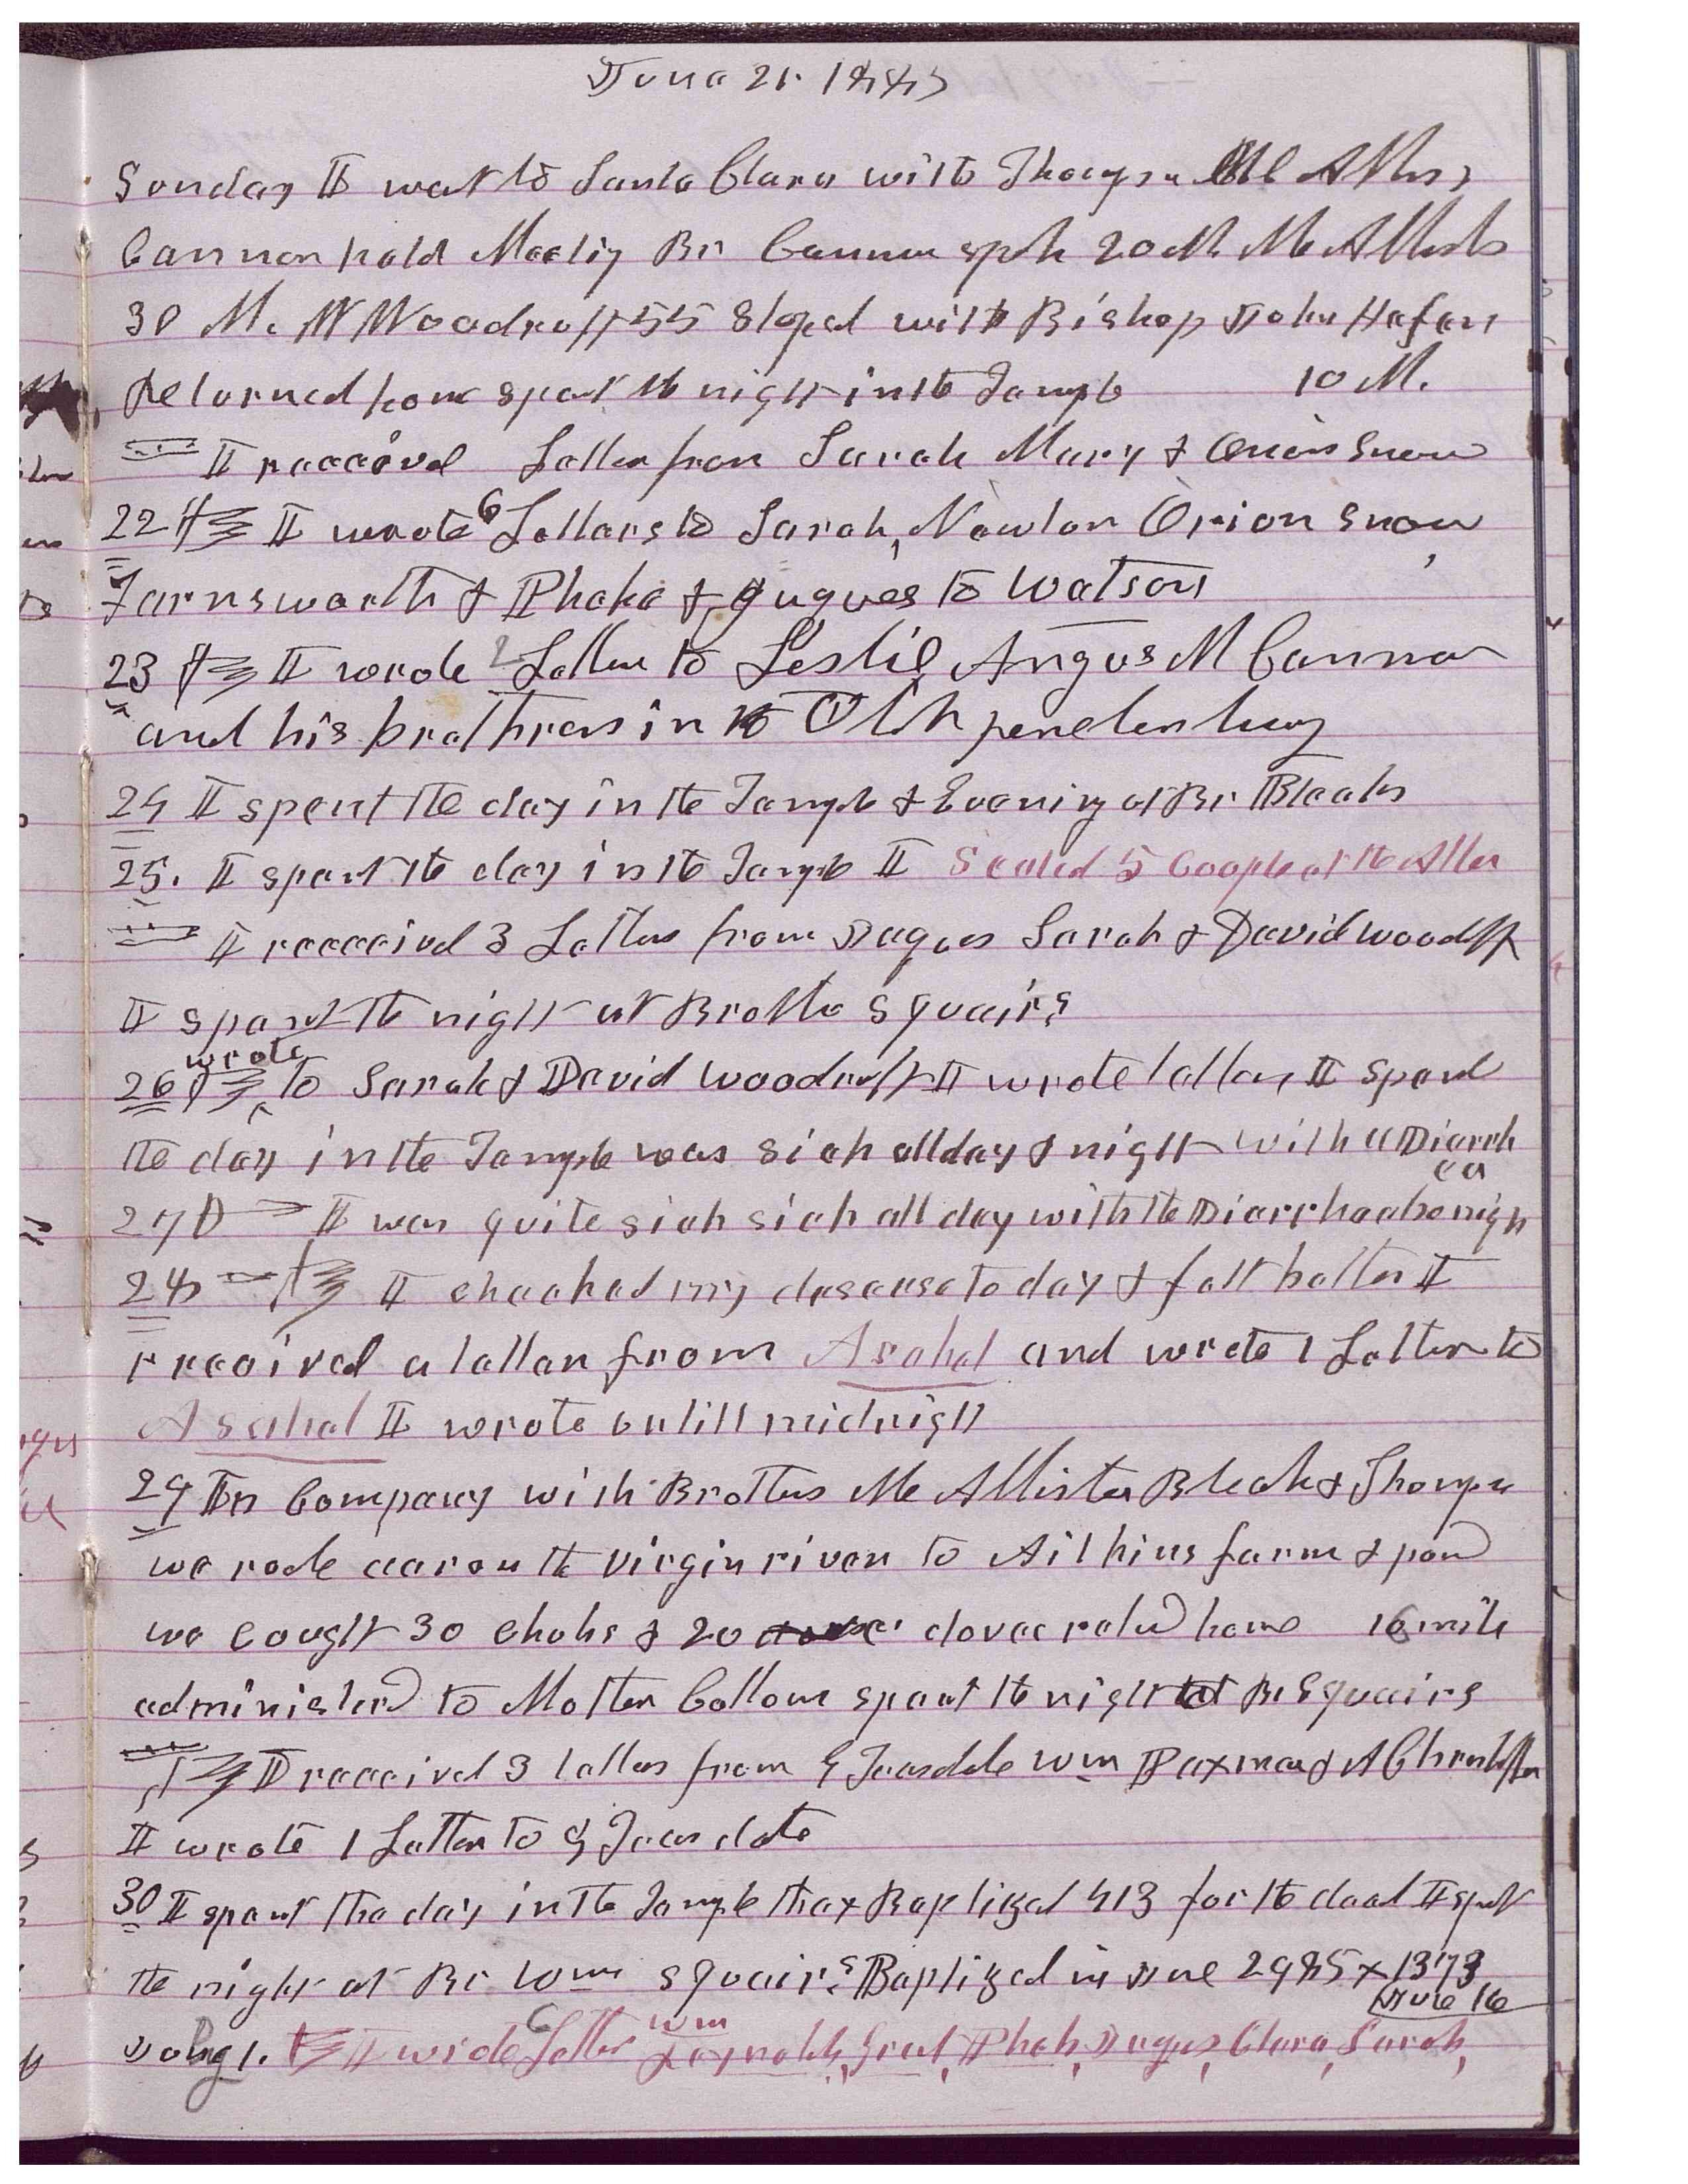 June 21. 1885
Sunday I went to Santa Clara with Thompson McAllister
Cannon held Meeting Br Cannon spoke 20 M. McAllister
30 M. W Woodruff 55 Stoped with Bishop John Hafen
Returned home spent the night in the Temple 10 M.
I received Letter from Sarah Mary & Orion Snow
22 I wrote 6 Letters to Sarah, Newton Orion Snow,
Farnsworth & Phebe & Jaques to Watson
23 I wrote 2 Letters to Leslie, Angus M Cannon
and his brethren in the Utah penetentury
24 I spent the day in the Temple & Evening at Br Bleaks
25. I spent the day in the Temple I Sealed 5 Couple at the Alter
I received 3 Letters from Jaques Sarah & David Woodruff
I spent the night at Brother Squairs
26 wrote to Sarah & David Woodruff I wrote letters I spent
the day in the Temple was sick all day & night with a Diarrhea
27 I was quite sick sick all day with the Diarrhea also night
28 I checked my desease to day & felt better I
received a letter from Asahel and wrote 1 Letter to
Asahel I wrote untill midnight
29 In Company with Brothers McAllister Bleak & Thompson
we rode across the virgin river to Atkins farm & pond
we cought 30 chubs & 20 doves retud home 16 mile
administerd to Mother Cottom spent the night at Br Squairs
I received 3 letters from G Teasdale Wm Paxman & A Christensen
I wrote 1 Letter to G Teasdale
30 I spent the day in the Temple they Baptized 413 for the dead I spent
the night at Br Wm Squairs Baptized in June 2985 x 1373
June 16
I wrote 6 Letters Wm Reynolds, Grant, Pheb, Jaques, Clara, Sarah,